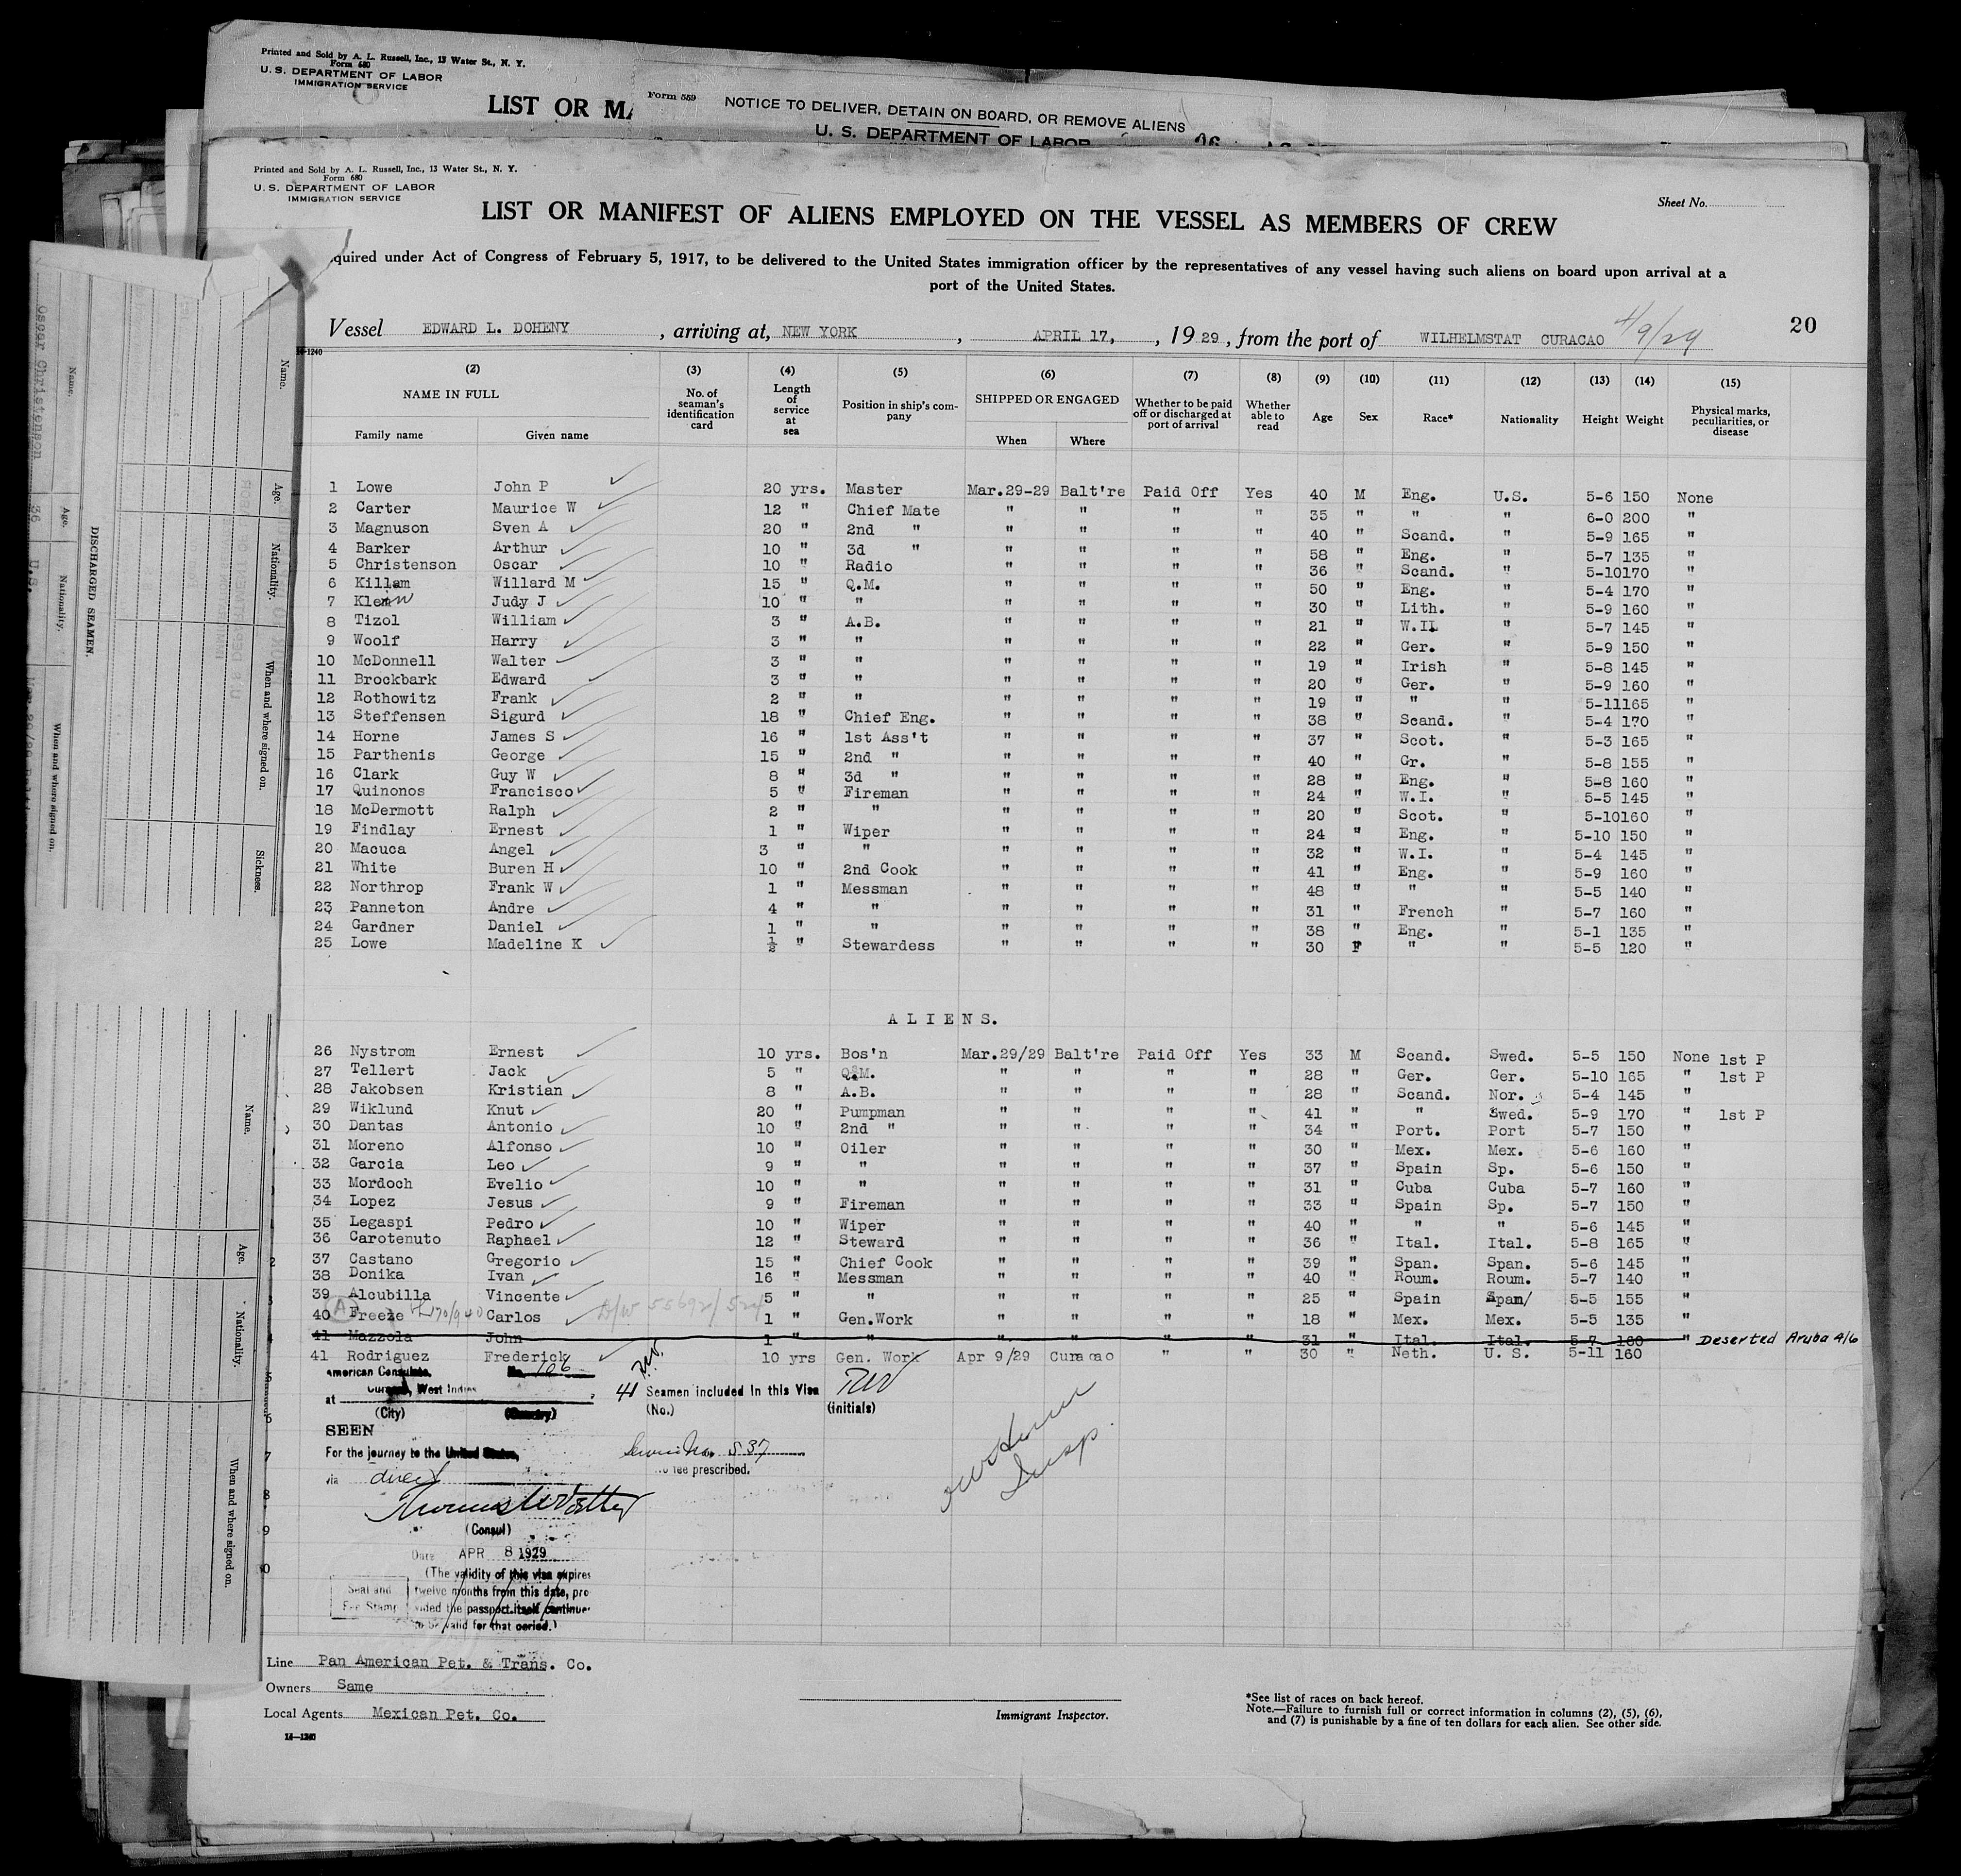 Printed and Sold by A. L. Russell, Inc., 13 Water St., N. Y.
Form 680
U. S. DEPARTMENT OF LABOR
IMMIGRATION SERVICE
LIST OR MA
Form 559 NOTICE TO DELIVER, DETAIN ON BOARD, OR REMOVE ALIENS
U. S. DEPARTMENT OF LABOR
Printed and Sold by A. L. Russell, Inc., 13 Water St., N. Y.
Form 680
U. S. DEPARTMENT OF LABOR
IMMIGRATION SERVICE
Sheet No.
LIST OR MANIFEST OF ALIENS EMPLOYED ON THE VESSEL AS MEMBERS OF CREW
quired under Act of Congress of February 5, 1917, to be delivered to the United States immigration officer by the representatives of any vessel having such aliens on board upon arrival at a
port of the United States.
Vessel EDWARD L. DOHENY , arriving at, NEW YORK , APRIL 17, , 19 29 , from the port of WILHELMSTAT CURACAO 4/9/29 20
14-1240
(2) NAME IN FULL Family name Given name (3) No. of seaman's identification card (4) Length of service at sea (5) Position in ship's company (6) SHIPPED OR ENGAGED When Where (7) Whether to be paid off or discharged at port of arrival (8) Whether able to read (9) Age (10) Sex (11) Race* (12) Nationality (13) Height (14) Weight (15) Physical marks, peculiarities, or disease
1 Lowe John P 20 yrs. Master Mar.29-29 Balt're Paid Off Yes 40 M Eng. U.S. 5-6 150 None
2 Carter Maurice W 12 " Chief Mate " " " " 35 " " " 6-0 200 "
3 Magnuson Sven A 20 " 2nd " " " " " 40 " Scand. " 5-9 165 "
4 Barker Arthur 10 " 3d " " " " " 58 " Eng. " 5-7 135 "
5 Christenson Oscar 10 " Radio " " " " 36 " Scand. " 5-10 170 "
6 Killam Willard M 15 " Q.M. " " " " 50 " Eng. " 5-4 170 "
7 Klem Judy J 10 " " " " " " 30 " Lith. " 5-9 160 "
8 Tizol William 3 " A.B. " " " " 21 " W.I. " 5-7 145 "
9 Woolf Harry 3 " " " " " " 22 " Ger. " 5-9 150 "
10 McDonnell Walter 3 " " " " " " 19 " Irish " 5-8 145 "
11 Brockbark Edward 3 " " " " " " 20 " Ger. " 5-9 160 "
12 Rothowitz Frank 2 " " " " " " 19 " " " 5-11 165 "
13 Steffensen Sigurd 18 " Chief Eng. " " " " 38 " Scand. " 5-4 170 "
14 Horne James S 16 " 1st Ass't " " " " 37 " Scot. " 5-3 165 "
15 Parthenis George 15 " 2nd " " " " " 40 " Gr. " 5-8 155 "
16 Clark Guy W 8 " 3d " " " " " 28 " Eng. " 5-8 160 "
17 Quinonos Francisco 5 " Fireman " " " " 24 " W.I. " 5-5 145 "
18 McDermott Ralph 2 " " " " " " 20 " Scot. " 5-10 160 "
19 Findlay Ernest 1 " Wiper " " " " 24 " Eng. " 5-10 150 "
20 Macuca Angel 3 " " " " " " 32 " W.I. " 5-4 145 "
21 White Buren H 10 " 2nd Cook " " " " 41 " Eng. " 5-9 160 "
22 Northrop Frank W 1 " Messman " " " " 48 " " " 5-5 140 "
23 Panneton Andre 4 " " " " " " 31 " French " 5-7 160 "
24 Gardner Daniel 1 " " " " " " 38 " Eng. " 5-1 135 "
25 Lowe Madeline K ½ " Stewardess " " " " 30 F " " 5-5 120 "
ALIENS.
26 Nystrom Ernest 10 yrs. Bos'n Mar.29/29 Balt're Paid Off Yes 33 M Scand. Swed. 5-5 150 None 1st P
27 Tellert Jack 5 " Q.M. " " " " 28 " Ger. Ger. 5-10 165 " 1st P
28 Jakobsen Kristian 8 " A.B. " " " " 28 " Scand. Nor. 5-4 145 "
29 Wiklund Knut 20 " Pumpman " " " " 41 " " Swed. 5-9 170 " 1st P
30 Dantas Antonio 10 " 2nd " " " " " 34 " Port. Port 5-7 150 "
31 Moreno Alfonso 10 " Oiler " " " " 30 " Mex. Mex. 5-6 160 "
32 Garcia Leo 9 " " " " " " 37 " Spain Sp. 5-6 150 "
33 Mordoch Evelio 10 " " " " " " 31 " Cuba Cuba 5-7 160 "
34 Lopez Jesus 9 " Fireman " " " " 33 " Spain Sp. 5-7 150 "
35 Legaspi Pedro 10 " Wiper " " " " 40 " " " 5-6 145 "
36 Carotenuto Raphael 12 " Steward " " " " 36 " Ital. Ital. 5-8 165 "
37 Castano Gregorio 15 " Chief Cook " " " " 39 " Span. Span. 5-6 145 "
38 Donika Ivan 16 " Messman " " " " 40 " Roum. Roum. 5-7 140 "
39 Alcubilla Vincente 5 " " " " " " 25 " Spain Span/ 5-5 155 "
40 Freeze Carlos 1 " Gen.Work " " " " 18 " Mex. Mex. 5-5 135 "
41 Mazzola John 1 " " " " " " 31 " Ital. Ital. 5-7 160 " Deserted Aruba 4/6
41 Rodriguez Frederick 10 yrs Gen. Work Apr 9/29 Curacao " " 30 " Neth. U. S. 5-11 160
American Consulate, No. 106
at Curaçao, West Indies
(City) (Country)
41 Seamen included in this Visa
(No.) (initials)
SEEN
For the journey to the United States,
Service No. 537
no fee prescribed.
via direct
(Consul)
Date APR 8 1929
(The validity of this visa expires
twelve months from this date, pro
vided the passport itself continues
to be valid for that period.)
Seal and
Fee Stamp
Insp.
Line Pan American Pet. & Trans. Co.
Owners Same
Local Agents Mexican Pet. Co.
14—1240
Immigrant Inspector.
*See list of races on back hereof.
Note.—Failure to furnish full or correct information in columns (2), (5), (6),
and (7) is punishable by a fine of ten dollars for each alien. See other side.
DISCHARGED SEAMEN.
Name. Age. Nationality. When and where signed on. Sickness.
Oscar Christenson 36 U.S.
Name. Age. Nationality. When and where signed on.
Name. Age. Nationality. When and where signed on.